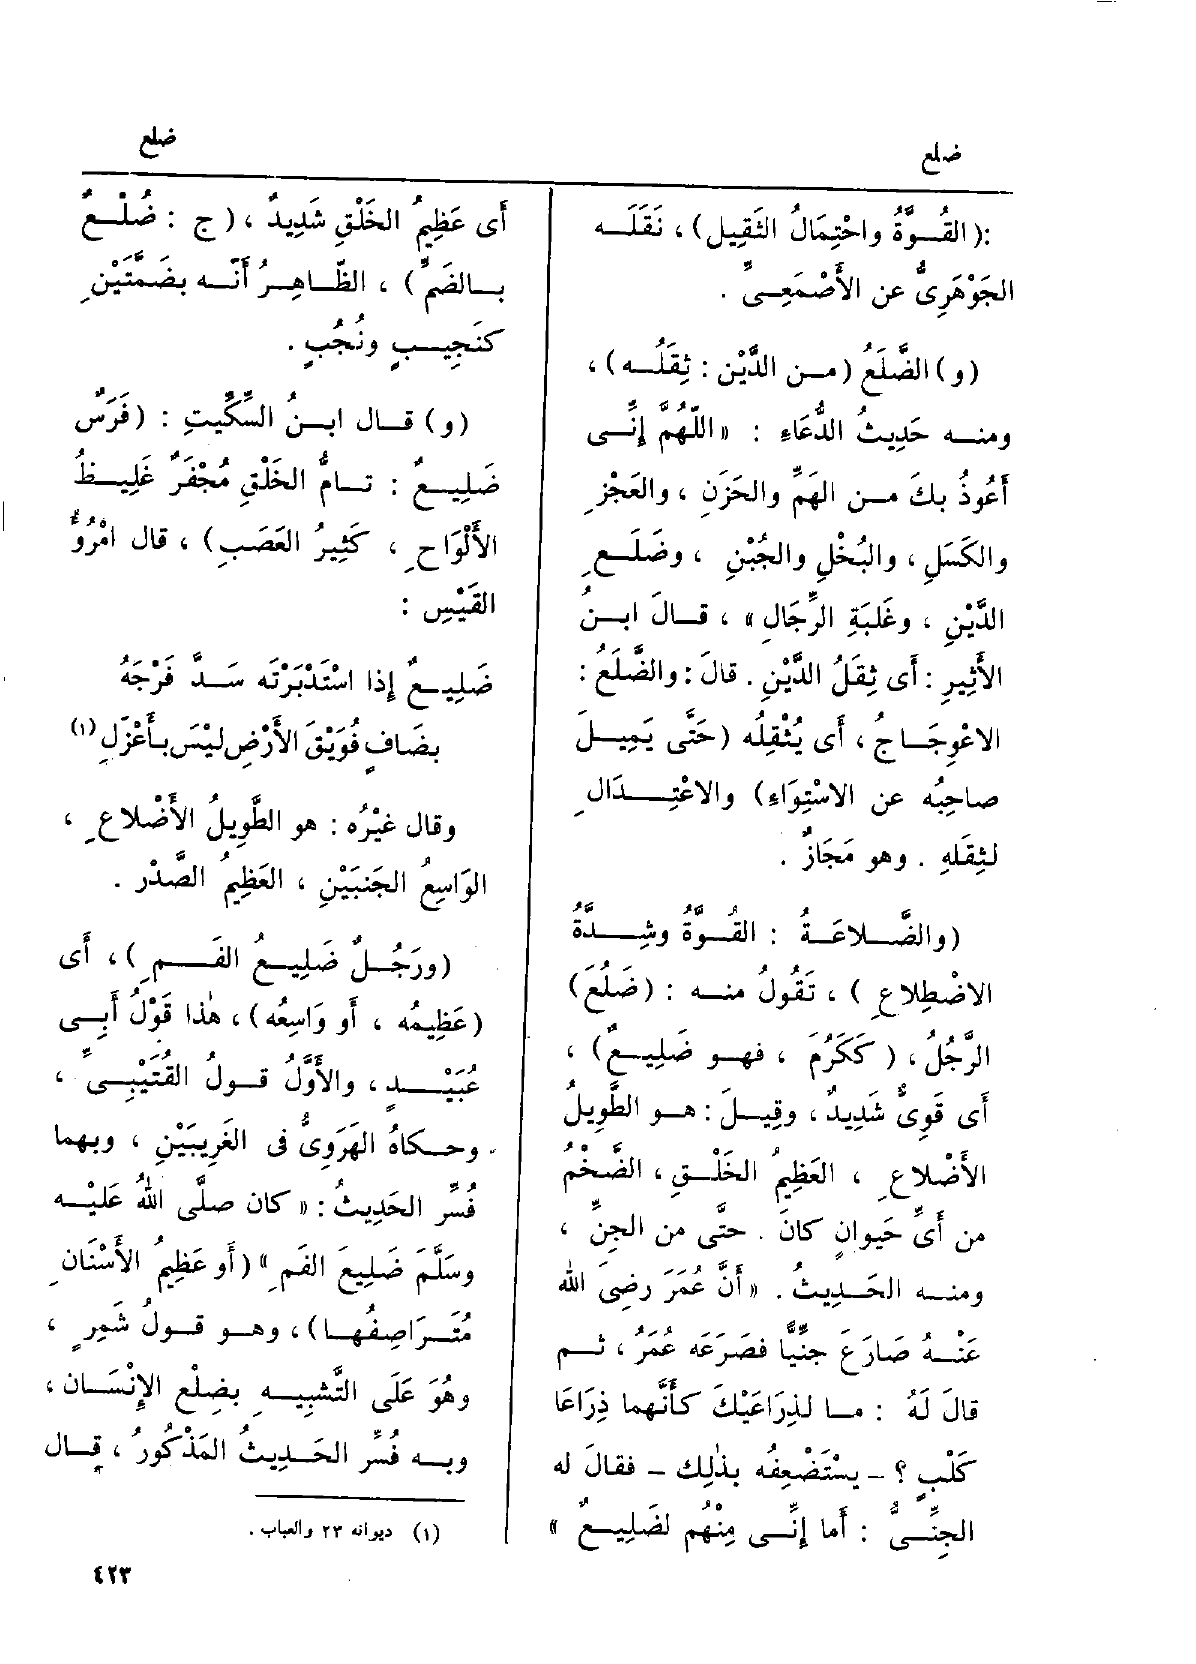 ضلع
ضلع
:( القُـــوَّةُ واحْتِمَالُ الثَقِيل) ، نَقَلَــه
الجَوْهَرِىُّ عن الأَصْمَعِــىِّ .
(و) الضَّلَعُ (مــن الدَّيْن : ثِقَلُــه) ،
ومنــه حَدِيثُ الدُّعَاءِ : « اللّهُمَّ إِنِّــى
أَعُوذُ بكَ مــن الهَمِّ والحَزَنِ ، والعَجْزِ
والكَسَلِ ، والبُخْلِ والجُبْنِ ، وضَلَــعِ
الدَّيْنِ ، وغَلبَةِ الرِّجَالِ » ، قــالَ ابــنُ
الأَثِيرِ : أَى ثِقَلُ الدَّيْنِ . قالَ : والضَّلَعُ :
الاعْوِجَــاجُ ، أَى يُثْقِلُه (حَتَّى يَمِيــلَ
صاحِبُه عن الاسْتِوَاءِ) والاعْتِــدَالِ
لثِقَلهِ . وهو مَجَازٌ .
(والضَّــلاعَــةُ : القُــوَّةُ وشِــدَّةُ
الاضْطِلاعِ ) ، تَقُولُ منــه : (ضَلُعَ)
الرَّجُلُ ، ( كَكَرُمَ ، فهــو ضَلِيــعٌ) ،
أَى قَوِىٌّ شَدِيدٌ ، وقِيــلَ : هــو الطَّوِيلُ
الأَضْلاعِ ، العَظِيمُ الخَلْــقِ ، الضَّخْمُ
من أَىِّ حَيوانٍ كانَ . حتَّى من الجِنِّ ،
ومنــه الحَــدِيثُ . « أَنَّ عُمَرَ رضِىَ اللهُ
عَنْــهُ صَارَعَ جنِّيًّا فصَرَعَه عُمَرُ ، ثــم
قالَ لَهُ : مــا لذِرَاعَيْكَ كأَنَّهما ذِرَاعَا
كَلْبٍ ؟ - يسْتَضْعِفُه بذٰلِك - فقالَ له
الجِنِّــىُّ : أَما إِنِّــى مِنْهُم لضَلِيــعٌ »
أَى عَظِيمُ الخَلْقِ شَدِيدٌ ، ( ج : ضُلْــعٌ
بــالضَمِّ) ، الظّــاهِــرُ أَنّــه بضَمَّتَيْنِ
كنَجِيــبٍ ونُجُبٍ .
(و) قــال ابــنُ السِّكِّيتِ : (فَرَسٌ
ضَلِيــعٌ : تــامُّ الخَلْقِ مُجْفَرٌ غَلِيــظُ
الأَلْوَاحِ ، كَثِيرُ العَصَبِ) ، قال امْرُؤُ
القَيْسِ :
ضَلِيــعٌ إِذا اسْتَدْبَرْتَه سَــدَّ فَرْجَهُ
بضَافٍ فُوَيْقَ الأَرْضِ ليْسَ بأَعْزَلِ (١)
وقال غيْرُه : هو الطَّوِيلُ الأَضْلاعِ ،
الوَاسِعُ الجَنبَيْنِ ، العَظِيمُ الصَّدْر .
(ورَجُــلٌ ضَلِيــعُ الفَــمِ ) ، أَى
(عَظِيمُه ، أَو وَاسِعُه) ، هٰذا قَوْلُ أَبِــى
عُبَيْــدٍ ، والأَوَّلُ قــولُ القُتَيْبِــىِّ ،
وحــكاهُ الهَرَوِىُّ فى الغَرِيبَيْنِ ، وبهما
فُسِّر الحَدِيثُ : « كان صلَّى اللهُ عَلَيْــه
وسَلَّمَ ضَلِيعَ الفَمِ » (أَو عَظِيمُ الأَسْنَانِ
مُتَــرَاصِفُهــا) ، وهــو قــولُ شَمِرٍ ،
وهُوَ عَلَى التَّشبِيــهِ بضِلْع الإِنْسَــان ،
وبــه فُسِّر الحَــدِيثُ المَذْكورُ ، قــال
(١) ديوانه ٢٣ والعباب .
٤٢٣